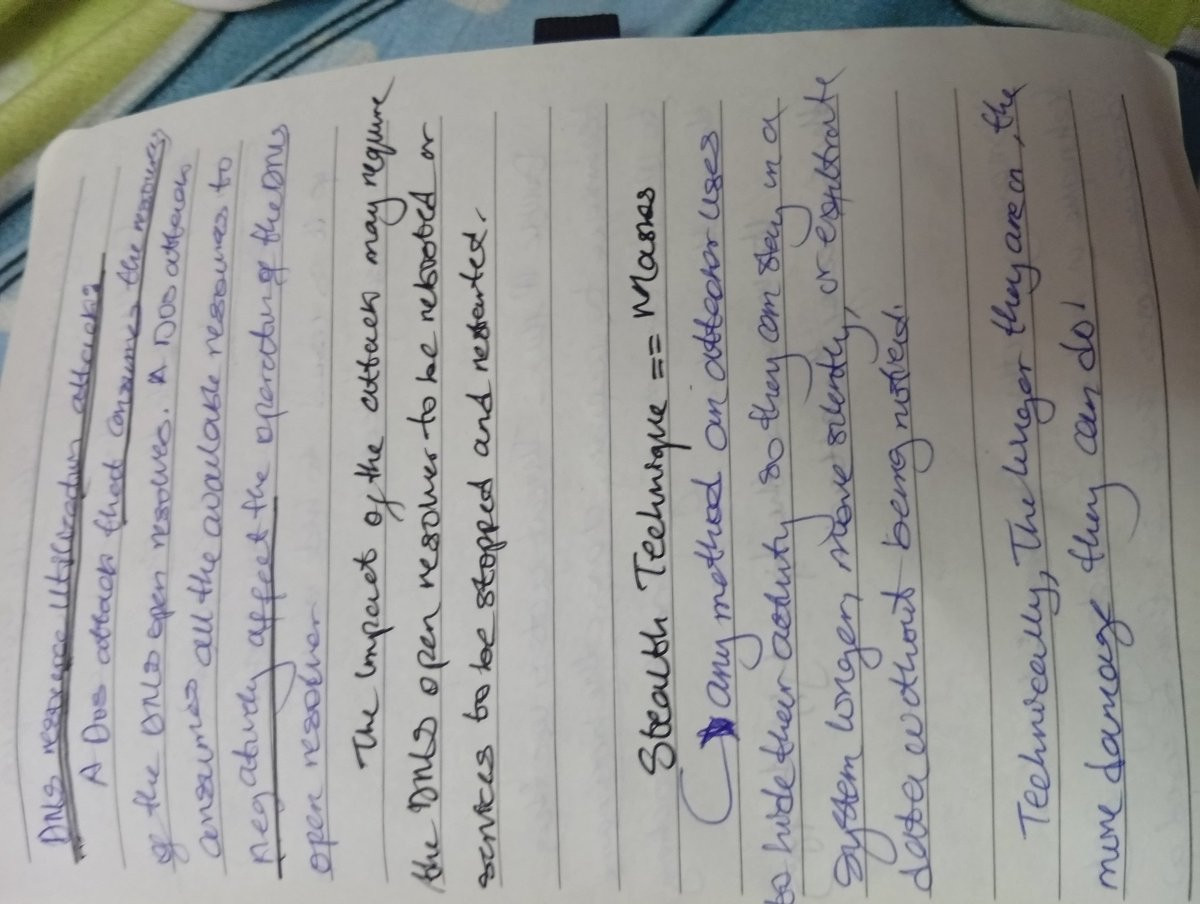 DNS resource utilization attacks
A Dos attack that consumes the resources
of the DNS open resolves. A Dos attack
consumes all the available resources to
negatively affect the operating of the DNS
open resolver
The impact of the attack may require
the DNS open resolver to be rebooted or
services to be stopped and restarted.
Stealth Technique == Masks
any method an attacker uses
to hide their activity so they can stay in a
system longer, move silently, or exfiltrate
data without being noticed.
Technically, The longer they are in, the
more damage they can do!